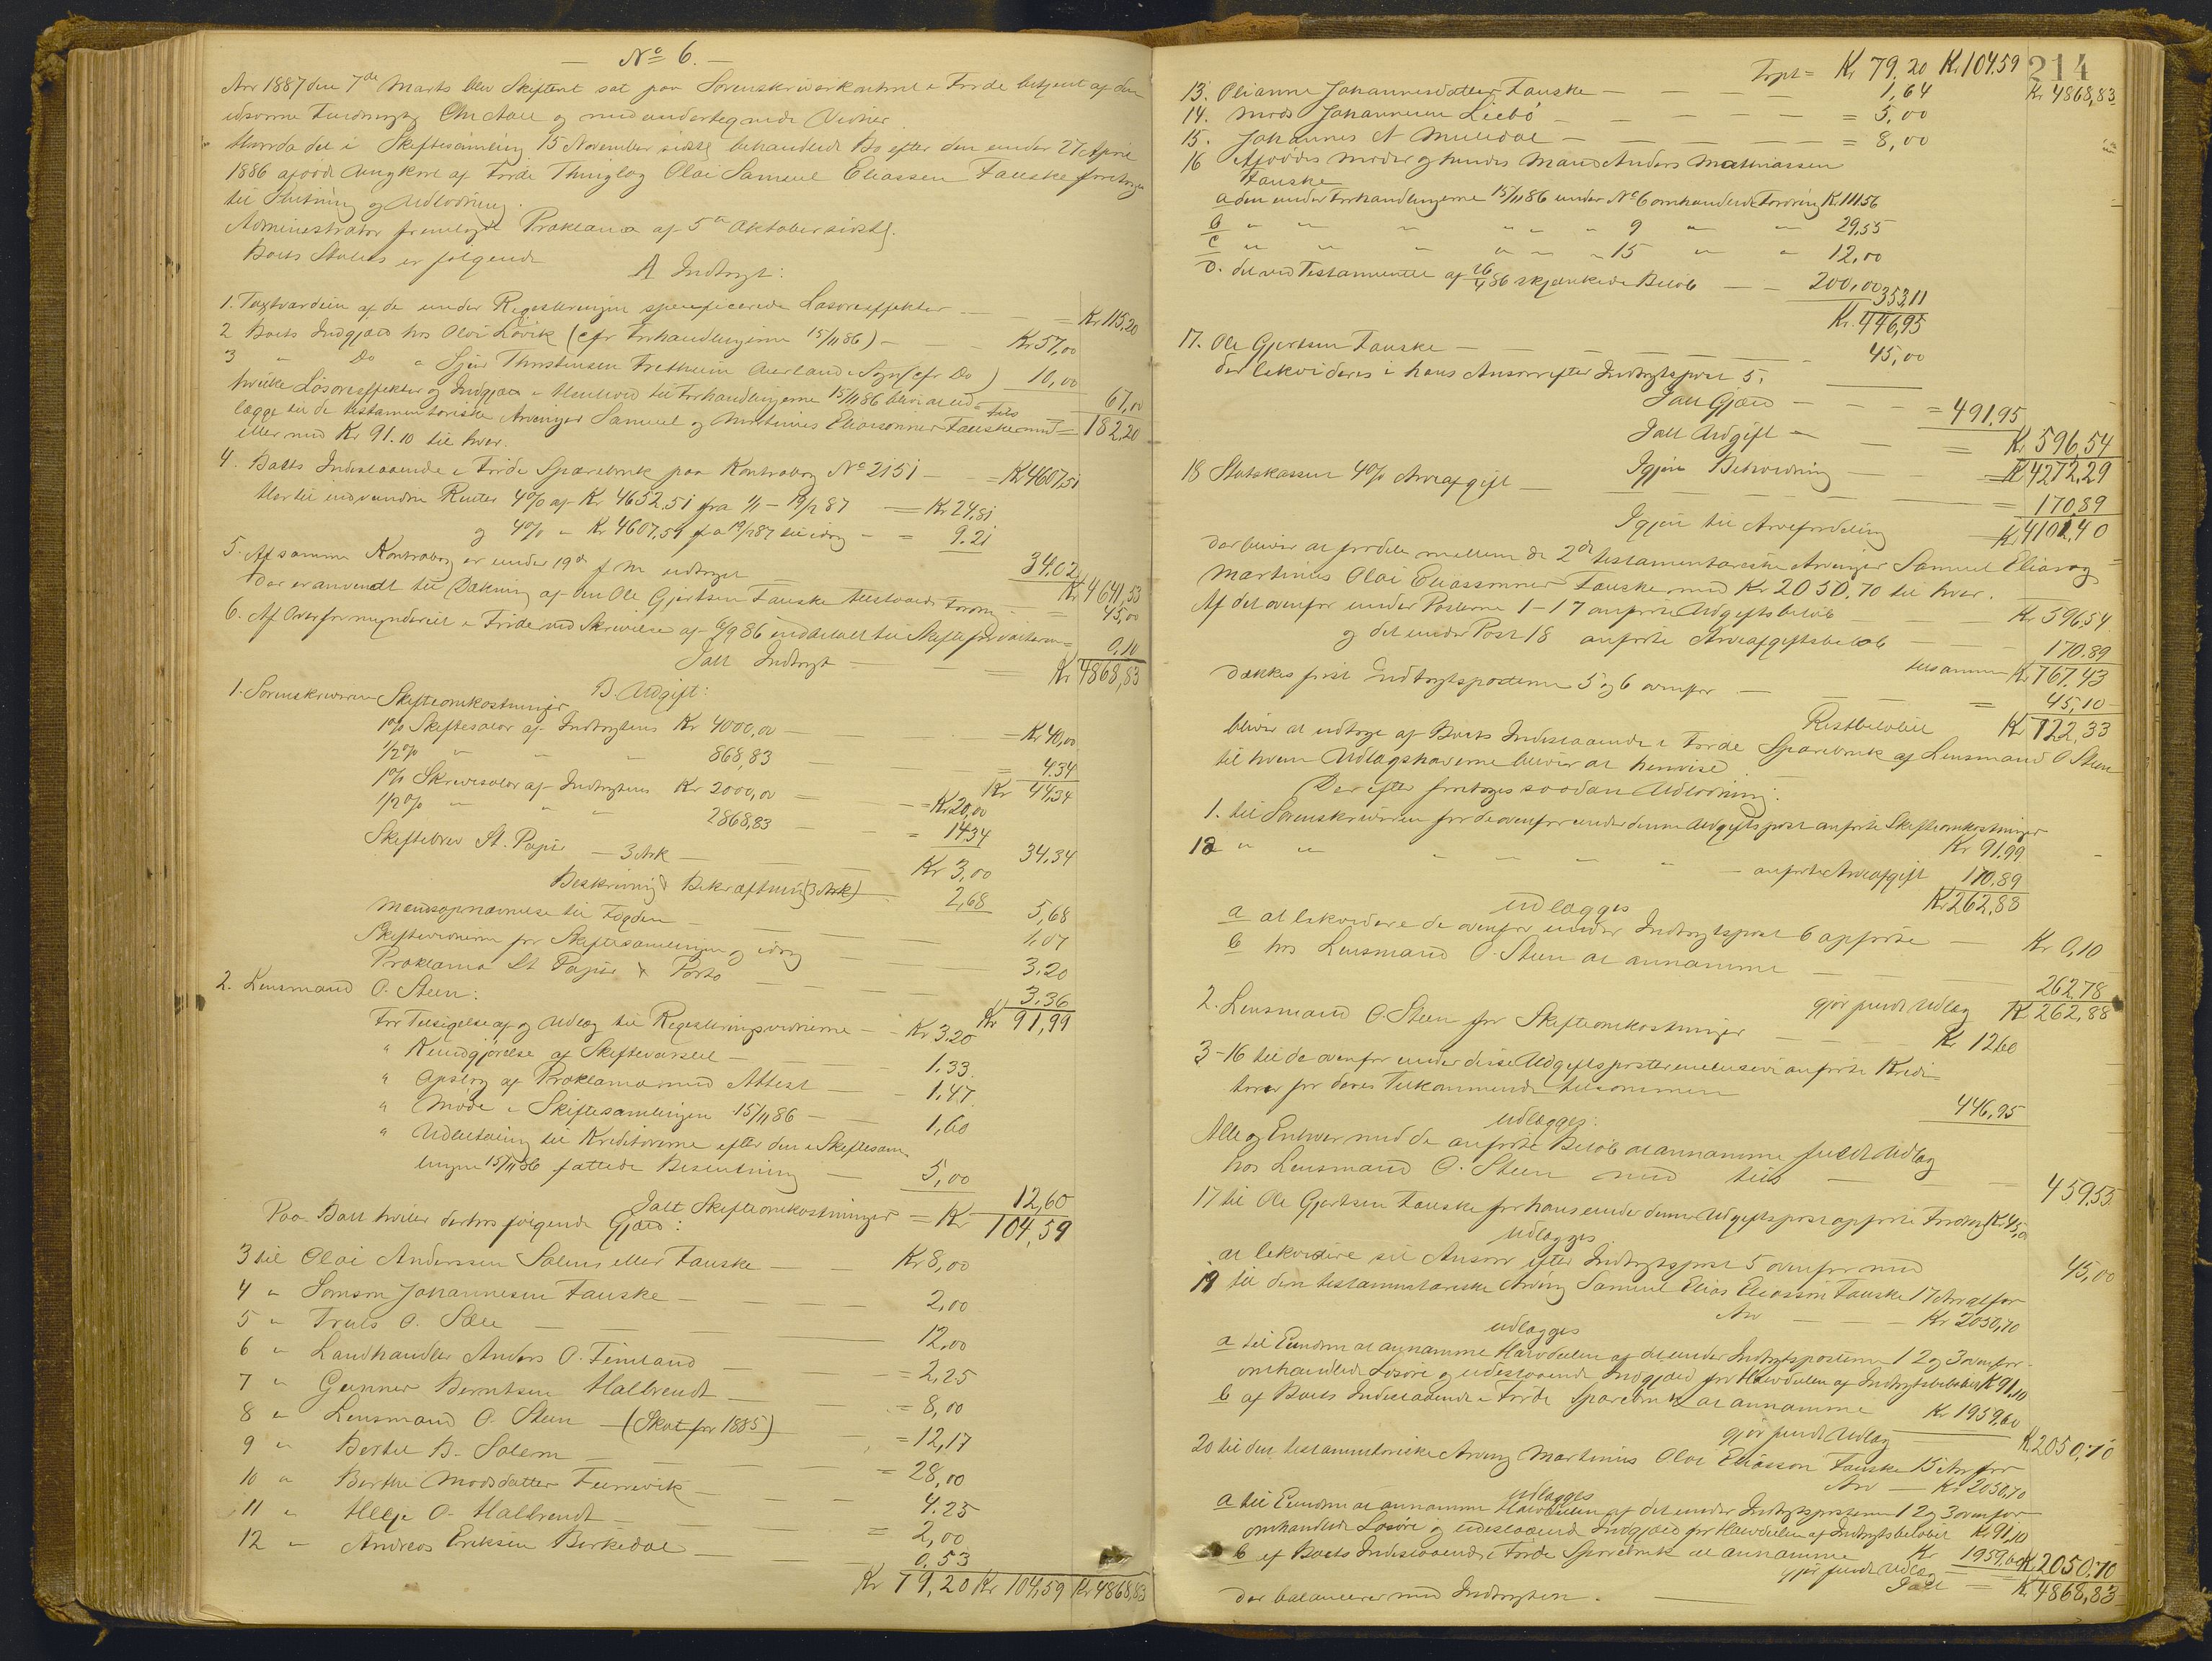 No 6.
Aar 1887 den 7de Marts blev Skifteret sat paa Sorenskriverkontoret i Førde betjent af den
edsvorne Fuldmægtig Chr Aall og medundertegnede Vidner.
Hvorda det i Skiftesamling 15 November sidstl. behandlede Bo efter den under 27 April
1886 afdøde Ungkarl af Førde Thinglag Olai Samuel Eliassen Fauske foretoges
til Slutning og Udlodning.
Administrator fremlagde Proklama af 5te Oktober sidstl.
Boets Status er følgende
A Indtægt:
1. Taxtværdien af de under Registreringen specificerede Løsøreeffekter — = Kr 115,20
2 Boets Indgjæld hos Olai Løvik (cfr Forhandlingerne 15/11 86) — Kr 57,00
3 " Do " Sjur Thorstensen Fretheim Aurland i Sogn (cfr Do) 10,00
67,00
hvilke Løsøreeffekter og Indgjæld i Henhold til Forhandlingerne 15/11 86 bliver at ud- tils
lægge til de testamentariske Arvinger Samuel og Martinus Eliassønner Fauske med = 182,20
eller med Kr 91.10 til hver.
4. Boets Indestaaende i Førde Sparebank paa Kontrabog No 2151 — = Kr 4607,51
Hertil indvundne Renter 4% af Kr 4652.51 fra 1/1 - 19/2 87 — = Kr 24,81
og 4% " Kr 4607,51 fra 19/2 87 til idag - = 9.21
34,02
Kr 4641,53
5. Af samme Kontrabog er under 19de f M udtaget
der er anvendt til Dækning af den Ole Gjertsen Fauske tilstaaede Fordring = 45,00
6. Af Overformynderiet i Førde ved Skrivelse af 6/9 86 indbetalt til Skifteforvalteren = 0,10
Ialt Indtægt — = Kr 4868,83
B. Udgift:
1. Sorenskriveren Skifteomkostninger
1% Skiftesalær af Indtægtens Kr 4000,00 — = Kr 40,00
1/2% " " " 868,83 — = 4.34
Kr 44,34
1% Skriversalær af Indtægtens Kr 2000,00 = — = Kr 20,00
1/2% " " " 2868,83 — = 14.34
34,34
Skiftebrev St. Papir — 3 Ark — Kr 3,00
Beskrivning & Bekræftning (3 Ark) 2,68
5,68
Mændsopnævnelse til Fogden — 1,07
Skiftevidnerne for Skiftesamlingen og idag — 3.20
Proklama St Papir & Porto — 3.36
Kr 91,99
2. Lensmand O. Steen:
For Tilsigelse af og Udlæg til Registreringsvidnerne — Kr 3.20
" Kundgjørelse af Skiftevarslet — 1.33
" Opslag af Proklama med Attest — 1.47
" Møde i Skiftesamlingen 15/11 86 — 1,60
" Udbetaling til Kreditorerne efter den i Skiftesam-
lingen 15/11 86 fattede Beslutning — 5,00
12,60
Ialt Skifteomkostninger = Kr 104,59
Paa Boet hviler derhos følgende Gjæld:
3 til Olai Anderssen Solem eller Fauske — Kr 8,00
4 " Samson Johannesen Fauske — 2,00
5 " Truls O. Sæle — 12,00
6 " Landhandler Anders O. Fimland — = 2,25
7 " Gunner Berntsen Halbrendt — = 8,00
8 " Lensmand O. Steen — (Skat for 1885) — = 12,17
9 " Bertel B. Solem — = 28,00
10 " Berthe Madsdatter — 4.25
11 " Helje O. Halbrendt — = 2,00
12 " Andreas Eriksen Birkedal — 0,53
Kr 79,20 Kr 104,59 Kr 4868,83
214
Trpt = Kr 79.20 Kr 104,59 Kr 4868,83
13. Olianne Johannesdatter Fauske — 1,64
14. Mads Johannesen Liebø — = 5,00
15. Johannes A Muledal — = 8,00
16 Afdødes Moder og hendes Mand Anders Mathiassen
Fauske
a den under Forhandlingerne 15/11 86 under No 6 omhandlede Fordring Kr 111.56
b " " " " " " 9 " " 29,55
c " " " " " " 15 " " 12,00
d. det ved Testamentet af 26/4 86 skjænkede Beløb — 200,00
353,11
Kr. 446,95
17. Ole Gjertsen Fauske — 45,00
der likvideres i hans Ansvar efter Indtægtspost 5.
Ialt Gjæld — = 491,95
Ialt Udgift — = Kr 596,54
Igjen Beholdning — = Kr 4272,29
18 Statskassen 4% Arveafgift — = 170,89
Igjen til Arvefordeling = Kr 4101,40
der bliver at fordele mellem de 2de testamentariske Arvinger Samuel Elias og
Martinus Olai Eliassønner Fauske med Kr 2050.70 til hver.
Af det ovenfor under Posterne 1-17 anførte Udgiftsbeløb — Kr 596.54
og det under Post 18 anførte Arveafgiftsbeløb — 170.89
tilsammen Kr 767,43
dækkes først Indtægtsposterne 5 og 6 ovenfor — = 45,10
Restbeløbet Kr 722,33
bliver at udtage af Boets Indestaaende i Førde Sparebank af Lensmand O Steen
til hvem Udlægshaverne bliver at henvise
Der efter foretoges saadan Udlodning:
1. til Sorenskriveren for de ovenfor under denne Udgiftspost anførte Skifteomkostninger
Kr 91.99
18 " " " " " " — anførte Arveafgift 170,89
Kr 262,88
udlægges
a at likvidere de ovenfor under Indtægtspost 6 opførte — Kr 0,10
b hos Lensmand O. Steen at annamme — 262,78
gjør fuldt Udlæg Kr 262,88
2. Lensmand O. Steen for Skifteomkostninger — Kr 12.60
3-16 til de ovenfor under disse Udgiftsposter inclusive anførte Kredi-
torer for deres Tilkommende tilsammen — 446,95
udlægges:
Alle og Enhver med de anførte Beløb at annamme fuldt Udlæg
hos Lensmand O. Steen med tils — 459.55
17 til Ole Gjertsen Fauske for hans under denne Udgiftspost opførte Fordring Kr 45,00
udlægges
at likvidere sit Ansvar efter Indtægtspost 5 ovenfor med 45,00
19 til den testamentariske Arving Samuel Elias Eliassøn Fauske 17 Aar for
Arv — Kr 2050,70
udlægges
a til Eiendom at annamme Halvdelen af det under Indtægtsposterne 1 2 og 3 ovenfor
omhandlede Løsøre og udestaaende Indgjæld for Halvdelen af Indtægtsbeløbet Kr 91.10
b af Boets Indestaaende i Førde Sparebank at annamme Kr 1959.60
gjør fuldt Udlæg Kr 2050,70
20 til den testamentariske Arving Martinus Olai Eliassøn Fauske 15 Aar for
Arv — Kr 2050,70
udlægges
a til Eiendom at annamme Halvdelen af det under Indtægtsposterne 1 2 og 3 ovenfor
omhandlede Løsøre og udestaaende Indgjæld for Halvdelen af Indtægtsbeløbet Kr 91,10
b af Boets Indestaaende i Førde Sparebank at annamme Kr 1959.60
gjør fuldt Udlæg Kr 2050,70
Ialt = Kr 4868,83
der balancerer med Indtægten.